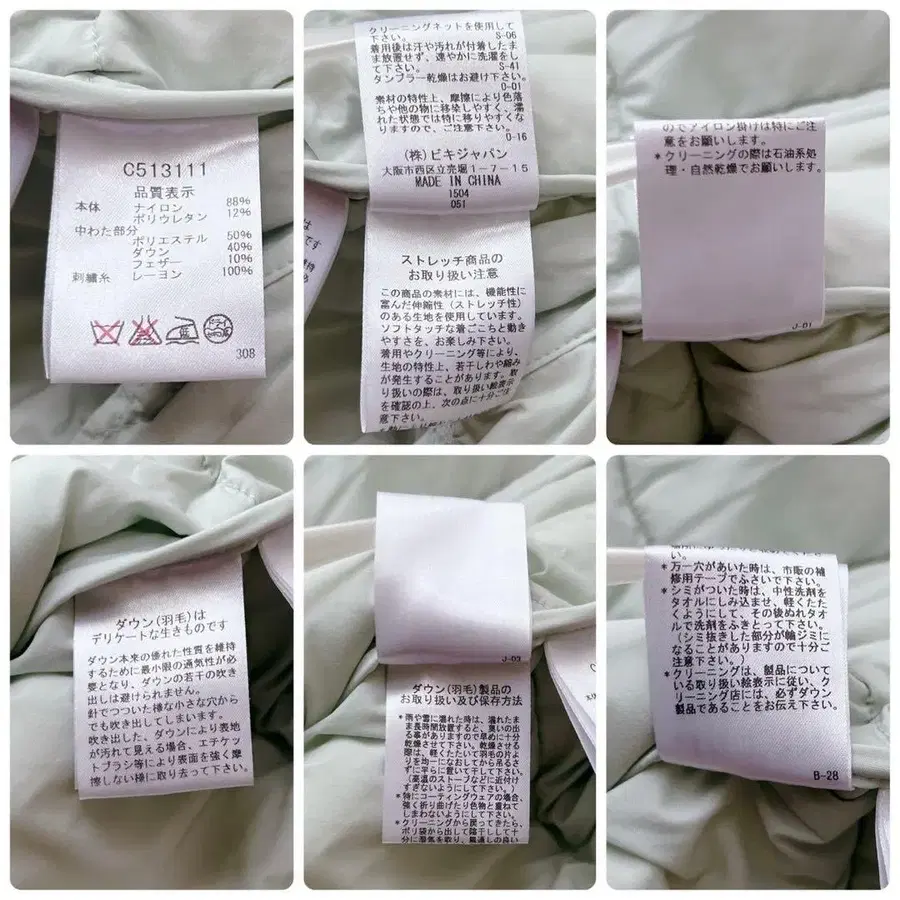 C513111
品質表示
本体 ナイロン 88%
ポリウレタン 12%
中わた部分
ポリエステル 50%
ダウン 40%
フェザー 10%
刺繍糸 レーヨン 100%
308
クリーニングネットを使用して
下さい。 S-06
着用後は汗や汚れが付着したま
ま放置せず、速やかに洗濯をし
て下さい。 S-41
タンブラー乾燥はお避け下さい。
O-01
素材の特性上、摩擦により色落
ちや他の物に移染しやすく、濡
れた状態では特に移りやすくな
りますので、ご注意下さい。
O-16
(株)ビキジャパン
大阪市西区立売堀1-7-15
MADE IN CHINA
1504
051
ストレッチ商品の
お取り扱い注意
この商品の素材には、機能性に
富んだ伸縮性(ストレッチ性)
のある生地を使用しています。
ソフトタッチな着ごこちと動き
やすさを、お楽しみ下さい。
着用やクリーニング等により、
生地の特性上、若干しわや縮み
が発生することがあります。取
り扱いの際は、取り扱い絵表示
を確認の上、次の点に十分ご注
意下さい。
のでアイロン掛けは特にご注
意をお願いします。
*クリーニングの際は石油系処
理・自然乾燥でお願いします。
J-01
ダウン(羽毛)は
デリケートな生きものです
ダウン本来の優れた性質を維持
するために最小限の通気性が必
要となり、ダウンの若干の吹き
出しは避けられません。
針でつついた様な小さな穴から
でも吹き出してしまいます。
吹き出した、ダウンにより表地
が汚れて見える場合、エチケッ
トブラシ等により表面を強く摩
擦しない様に取り去って下さい。
J-03
ダウン(羽毛)製品の
お取り扱い及び保存方法
*雨や雪に濡れた時は、濡れたま
ま長時間放置すると、臭いの出
る事がありますので早めに十分
乾燥させて下さい。乾燥させる
際は、軽くたたいて羽毛の片よ
りを均一になおしてから吊るさ
ずに平らに置いて干して下さい。
(高温のストーブなどに近付け
すぎないようにして下さい。)
*特にコーティングウェアの場合、
強く折り曲げたり色物と重ねて
しまわないようにして下さい。
*クリーニングから戻ってきたら、
ポリ袋から出して陰干しして十
分に湿気を取り、風通しの良い
い。
*万一穴があいた時は、市販の補
修用テープでふさいで下さい。
*シミがついた時は、中性洗剤を
タオルにしみ込ませ、軽くたた
くようにして、その後ぬれタオ
ルで洗剤をふきとって下さい。
(シミ抜きした部分が輪ジミに
なることがありますので十分ご
注意下さい。)
*クリーニングは、製品につい
ている取り扱い絵表示に従い、ク
リーニング店には、必ずダウン
製品であることをお伝え下さい。
B-28